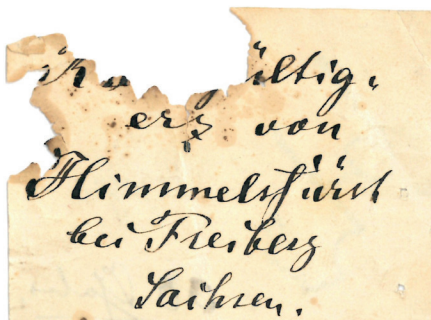 Ro ültig-
erz von
Himmelsfürst
bei Freiberg
Sachsen.